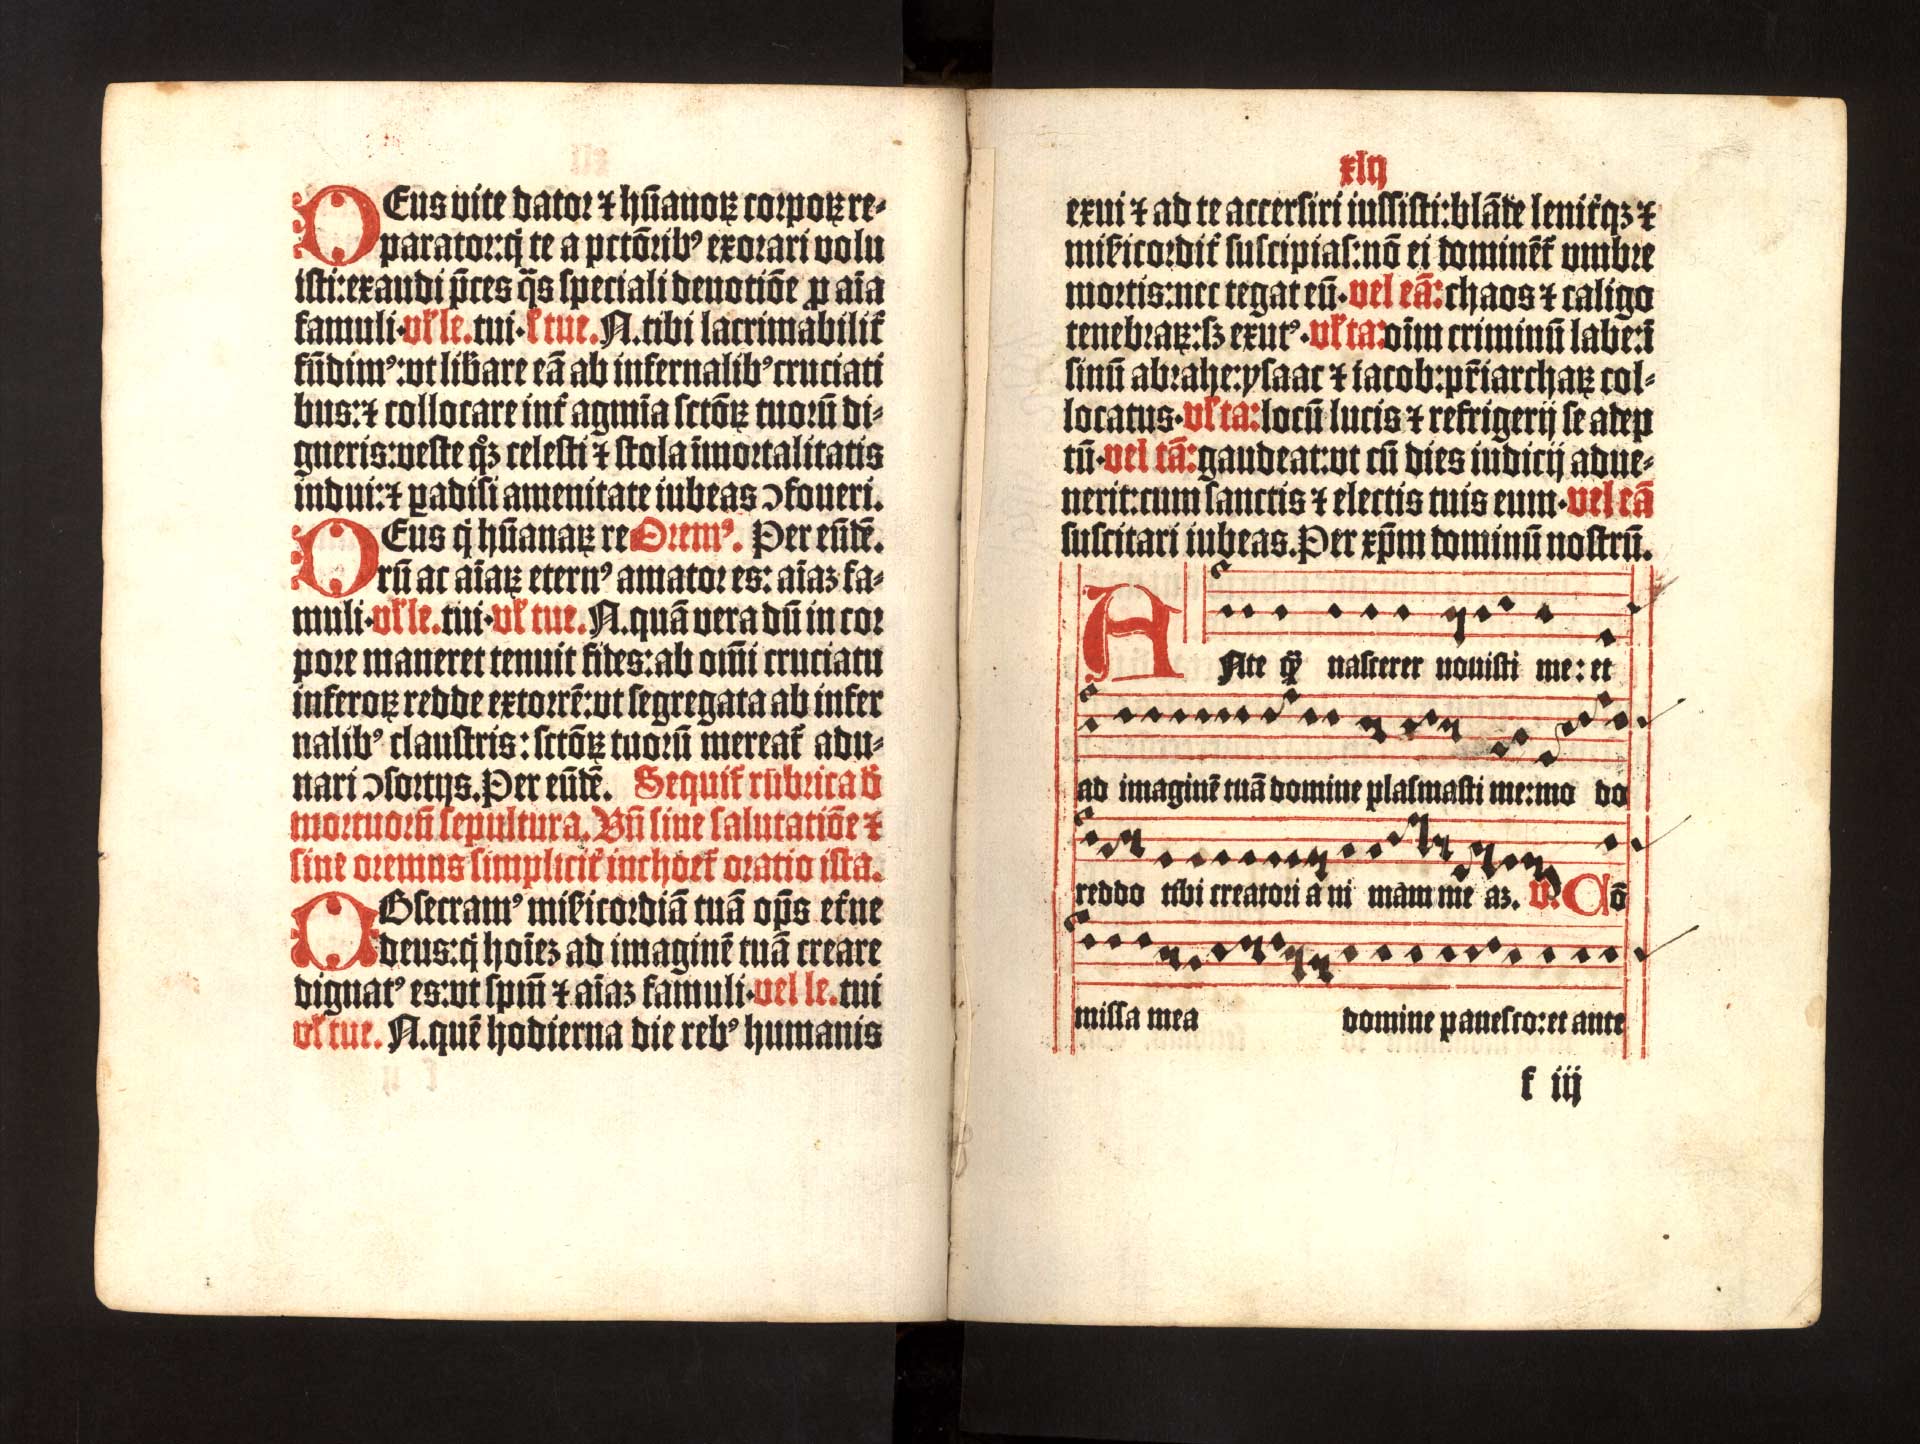 DEus vite dator ⁊ hūanoꝝ corpoꝝ re⸗
parator:q̇ te a pctōribꝰ exorari volu
isti:exaudi p̄ces q̄s speciali deuotiōe ꝓ aīa
famuli·vł le.tui·ł tue.N.tibi lacrimabilit̄
fūdimꝰ:vt lib̄are eā ab infernalibꝰ cruciati
bus:⁊ collocare int̄ agmīa sctōꝝ tuorū di⸗
gneris:veste qͦꝫ celesti ⁊ stola īmortalitatis
indui:⁊ ꝑadisi amenitate iubeas ꝯfoueri.
DEus q̇ hūanaꝝ re Oremꝰ. Per eūdē.
rū ac aīaꝝ eternꝰ amator es: aīaꝫ fa⸗
muli·vł le.tui·vł tue.N.quā vera dū in cor
pore maneret tenuit fides:ab om̄i cruciatu
inferoꝝ redde extorrē:vt segregata ab infer
nalibꝰ claustris: sctōꝝ tuorū mereat̄ adu⸗
nari ꝯsortijs.Per eūdē. Sequit̄ rubrica ꝺ̄
mortuorū sepultura.Vn̄ sine salutatiōe ⁊
sine oremus simplicit̄ inchoet̄ oratio ista.
OBsecramꝰ mis̄icordiā tuā op̄s et̄ne
deus:q̇ hoīeꝫ ad imaginē tuā creare
dignatꝰ es:vt spm̄ ⁊ aīaꝫ famuli·vel le.tui
vł tue. N.quē hodierna die rebꝰ humanis
xlij
exui ⁊ ad te accersiri iussisti:blāde lenit̄qꝫ ⁊
mis̄icordit̄ suscipias:nō ei dominēt̄ vmbre
mortis:nec tegat eū·vel eā:chaos ⁊ caligo
tenebraꝝ:sꝫ exutꝰ·vł ta:oīm criminū labe:ī
sinū abrahe:ysaac ⁊ iacob:pr̄iarchaꝝ col⸗
locatus·vł ta:locū lucis ⁊ refrigerij se adep
tū·vel tā:gaudeat:vt cū dies iudicij adue⸗
nerit:cum sanctis ⁊ electis tuis eum·vel eā
suscitari iubeas.Per xp̄m dominū nostrū.
ANte qͣ̄ nascerer nouisti me: et
ad imaginē tuā domine plasmasti me:mo do
reddo tibi creatori a ni mam me aꝫ. V. Cō
missa mea domine pauesco:et ante
f iij